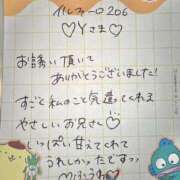 イルフィーロ206
♡Yさま♡
お誘い頂いて
ありがとうございました!
すごく私のこと気遣ってくれる
やさしいお兄さん♡
いっぱい甘えてくれて
うれしかったですっっ
♡ふうわ♡